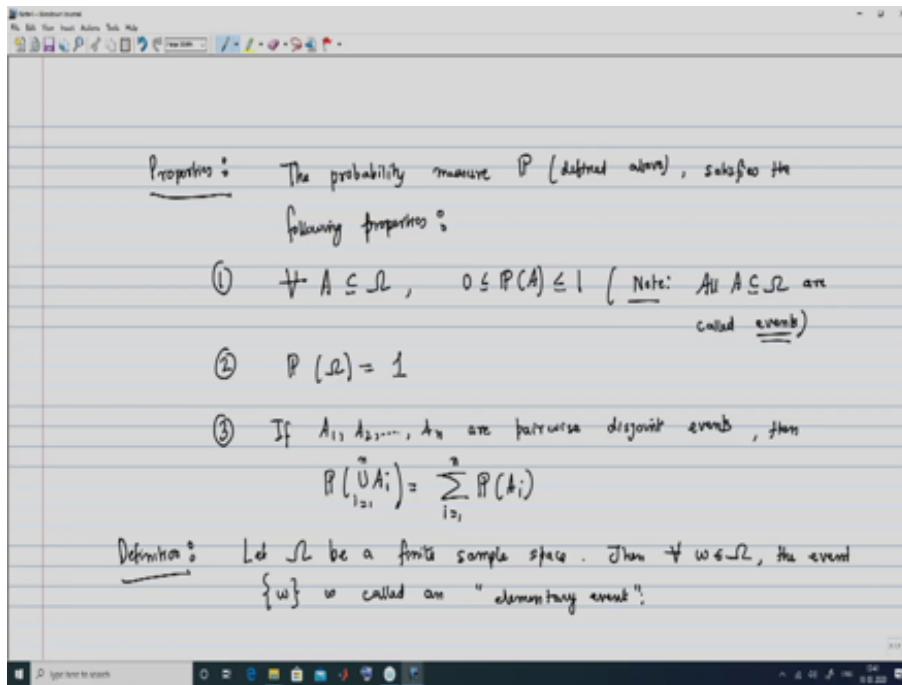 Properties : The probability measure ℙ (defined above), satisfies the
following properties :
① ∀ A ⊆ Ω, 0 ≤ ℙ(A) ≤ 1 ( Note: All A ⊆ Ω are
called events)
② ℙ (Ω) = 1
③ If A₁, A₂, ...., Aₙ are pairwise disjoint events, then
ℙ(⋃ᵢ₌₁ⁿ Aᵢ) = ∑ᵢ₌₁ⁿ ℙ(Aᵢ)
Definition : Let Ω be a finite sample space. Then ∀ w ∈ Ω, the event
{w} is called an "elementary event".
Type here to search